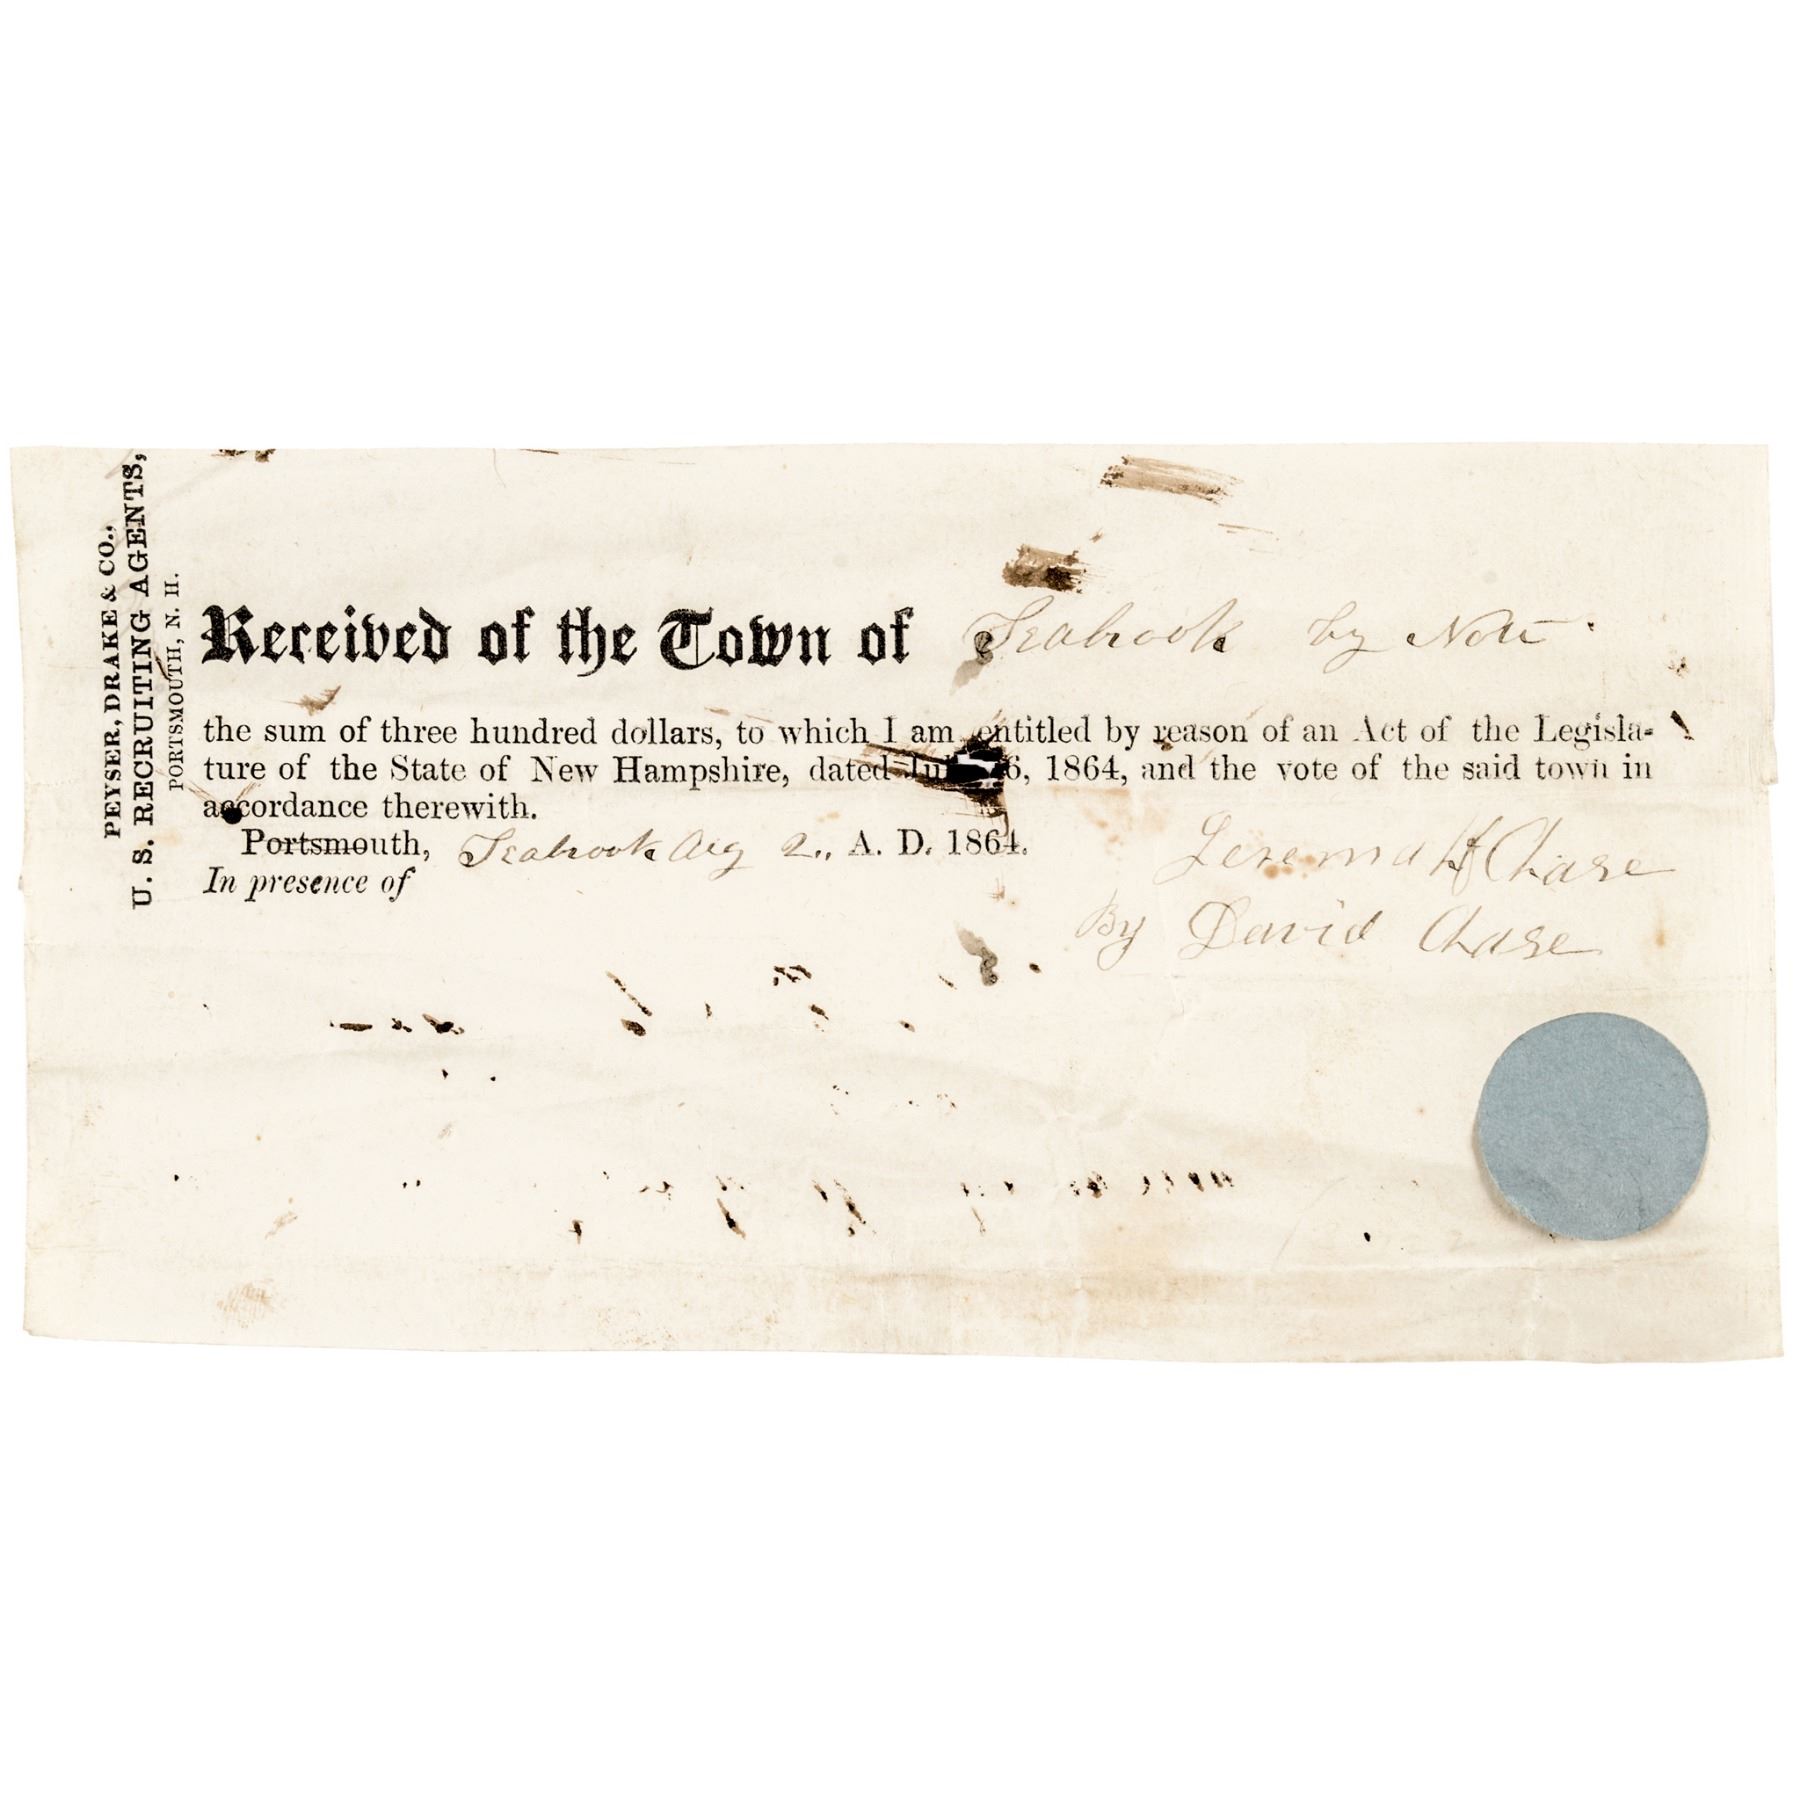 PEYSER, DRAKE & CO.,
U. S. RECRUITING AGENTS,
PORTSMOUTH, N. H.
Received of the Town of Seabrook by Note
the sum of three hundred dollars, to which I am entitled by reason of an Act of the Legisla-
ture of the State of New Hampshire, dated 1864, and the vote of the said town in
accordance therewith.
Portsmouth, Seabrook Aug 2., A. D. 1864.
In presence of
H Chase
By David Chase